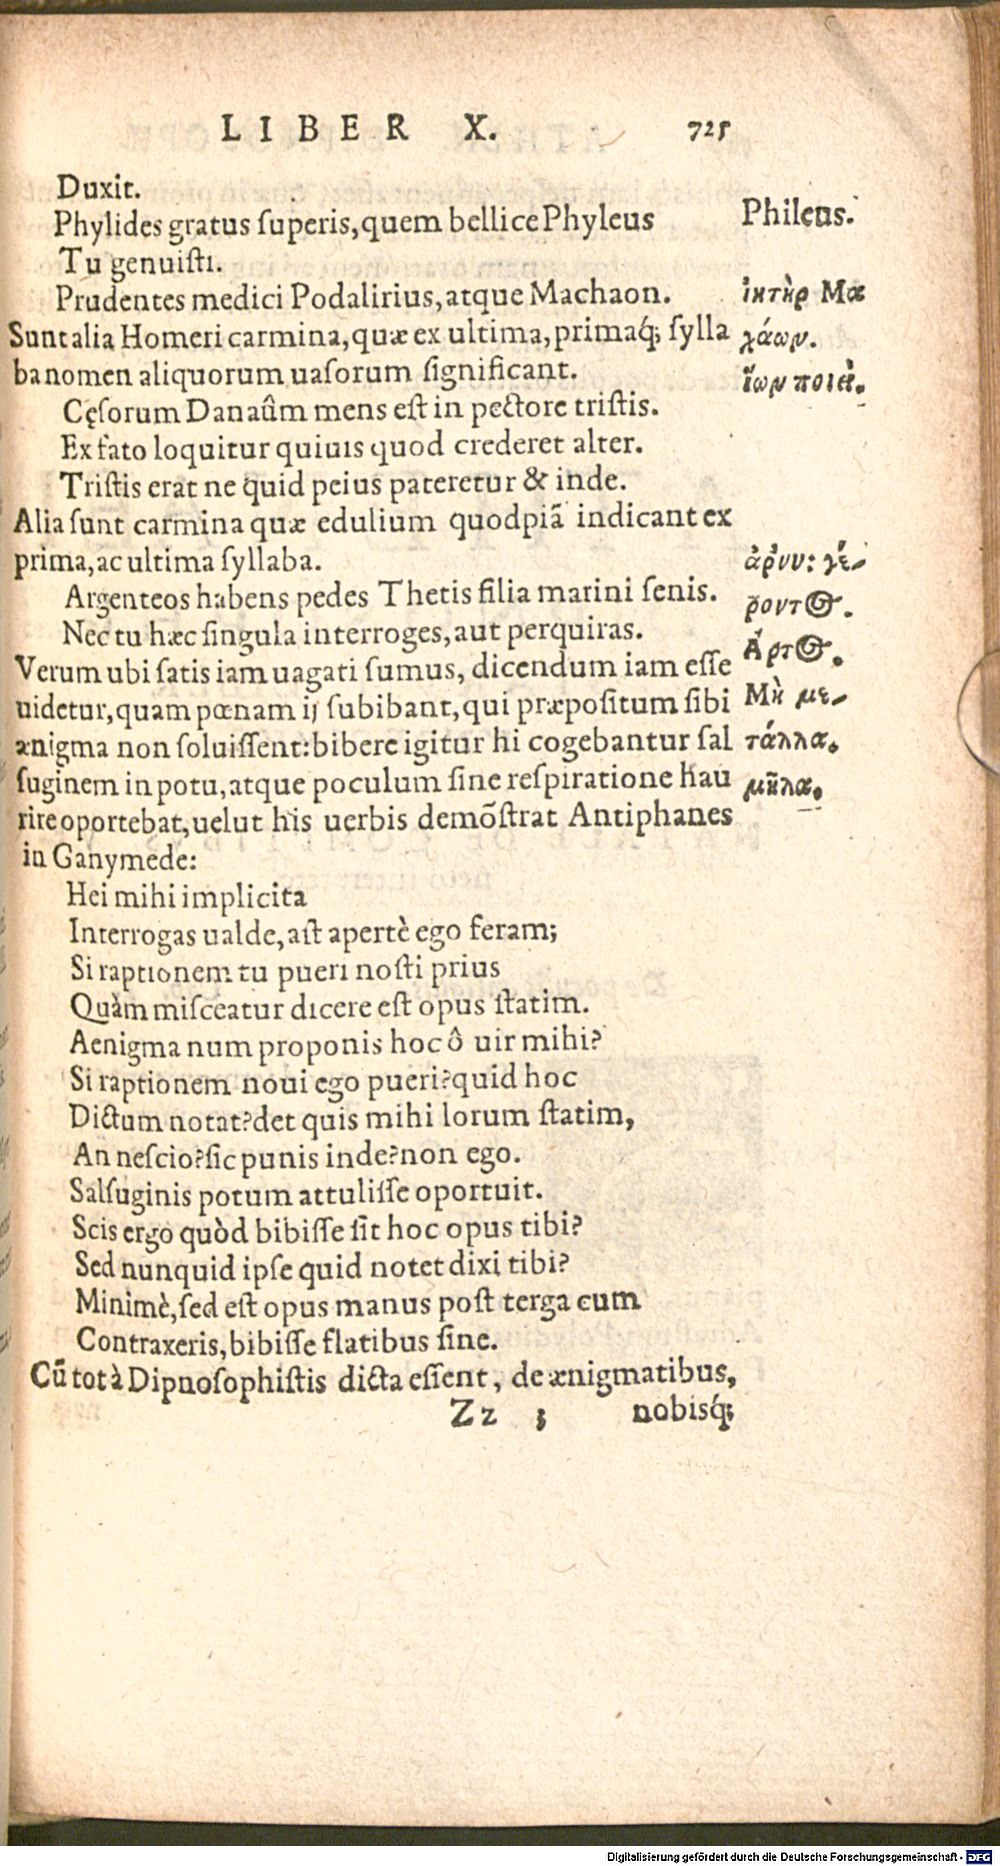 LIBER X. 725
Duxit.
Phylides gratus ſuperis, quem bellice Phyleus
Tu genuiſti.
Prudentes medici Podalirius, atque Machaon.
Sunt alia Homeri carmina, quæ ex ultima, primaq́; ſylla
ba nomen aliquorum uaſorum ſignificant.
Cęſorum Danaûm mens eſt in pectore triſtis.
Ex fato loquitur quiuis quod crederet alter.
Triſtis erat ne quid peius pateretur & inde.
Alia ſunt carmina quæ edulium quodpiã indicant ex
prima, ac ultima ſyllaba.
Argenteos habens pedes Thetis filia marini ſenis.
Nec tu hæc ſingula interroges, aut perquiras.
Verum ubi ſatis iam uagati ſumus, dicendum iam eſſe
uidetur, quam pœnam ij ſubibant, qui præpoſitum ſibi
ænigma non ſoluiſſent: bibere igitur hi cogebantur ſal
ſuginem in potu, atque poculum ſine reſpiratione hau
rire oportebat, uelut his uerbis demõſtrat Antiphanes
in Ganymede:
Hei mihi implicita
Interrogas ualde, aſt apertè ego feram;
Si raptionem tu pueri noſti prius
Quàm miſceatur dicere eſt opus ſtatim.
Aenigma num proponis hoc ô uir mihi?
Si raptionem noui ego pueri? quid hoc
Dictum notat? det quis mihi lorum ſtatim,
An neſcio? ſic punis inde? non ego.
Salſuginis potum attuliſſe oportuit.
Scis ergo quòd bibiſſe ſit hoc opus tibi?
Sed nunquid ipſe quid notet dixi tibi?
Minimè, ſed eſt opus manus poſt terga cum
Contraxeris, bibiſſe flatibus ſine.
Cũ tot à Dipnoſophiſtis dicta eſſent, de ænigmatibus,
Zz 3 nobisq́;
Phileus.
ἰητὴρ Μα
χάων.
ἴων ποιεῖ.
ἀρ́νυ: γέ-
ροντος.
Ἄρτος.
Μὴ με-
τάλλα.
μῆλα.
Digitalisierung gefördert durch die Deutsche Forschungsgemeinschaft - DFG